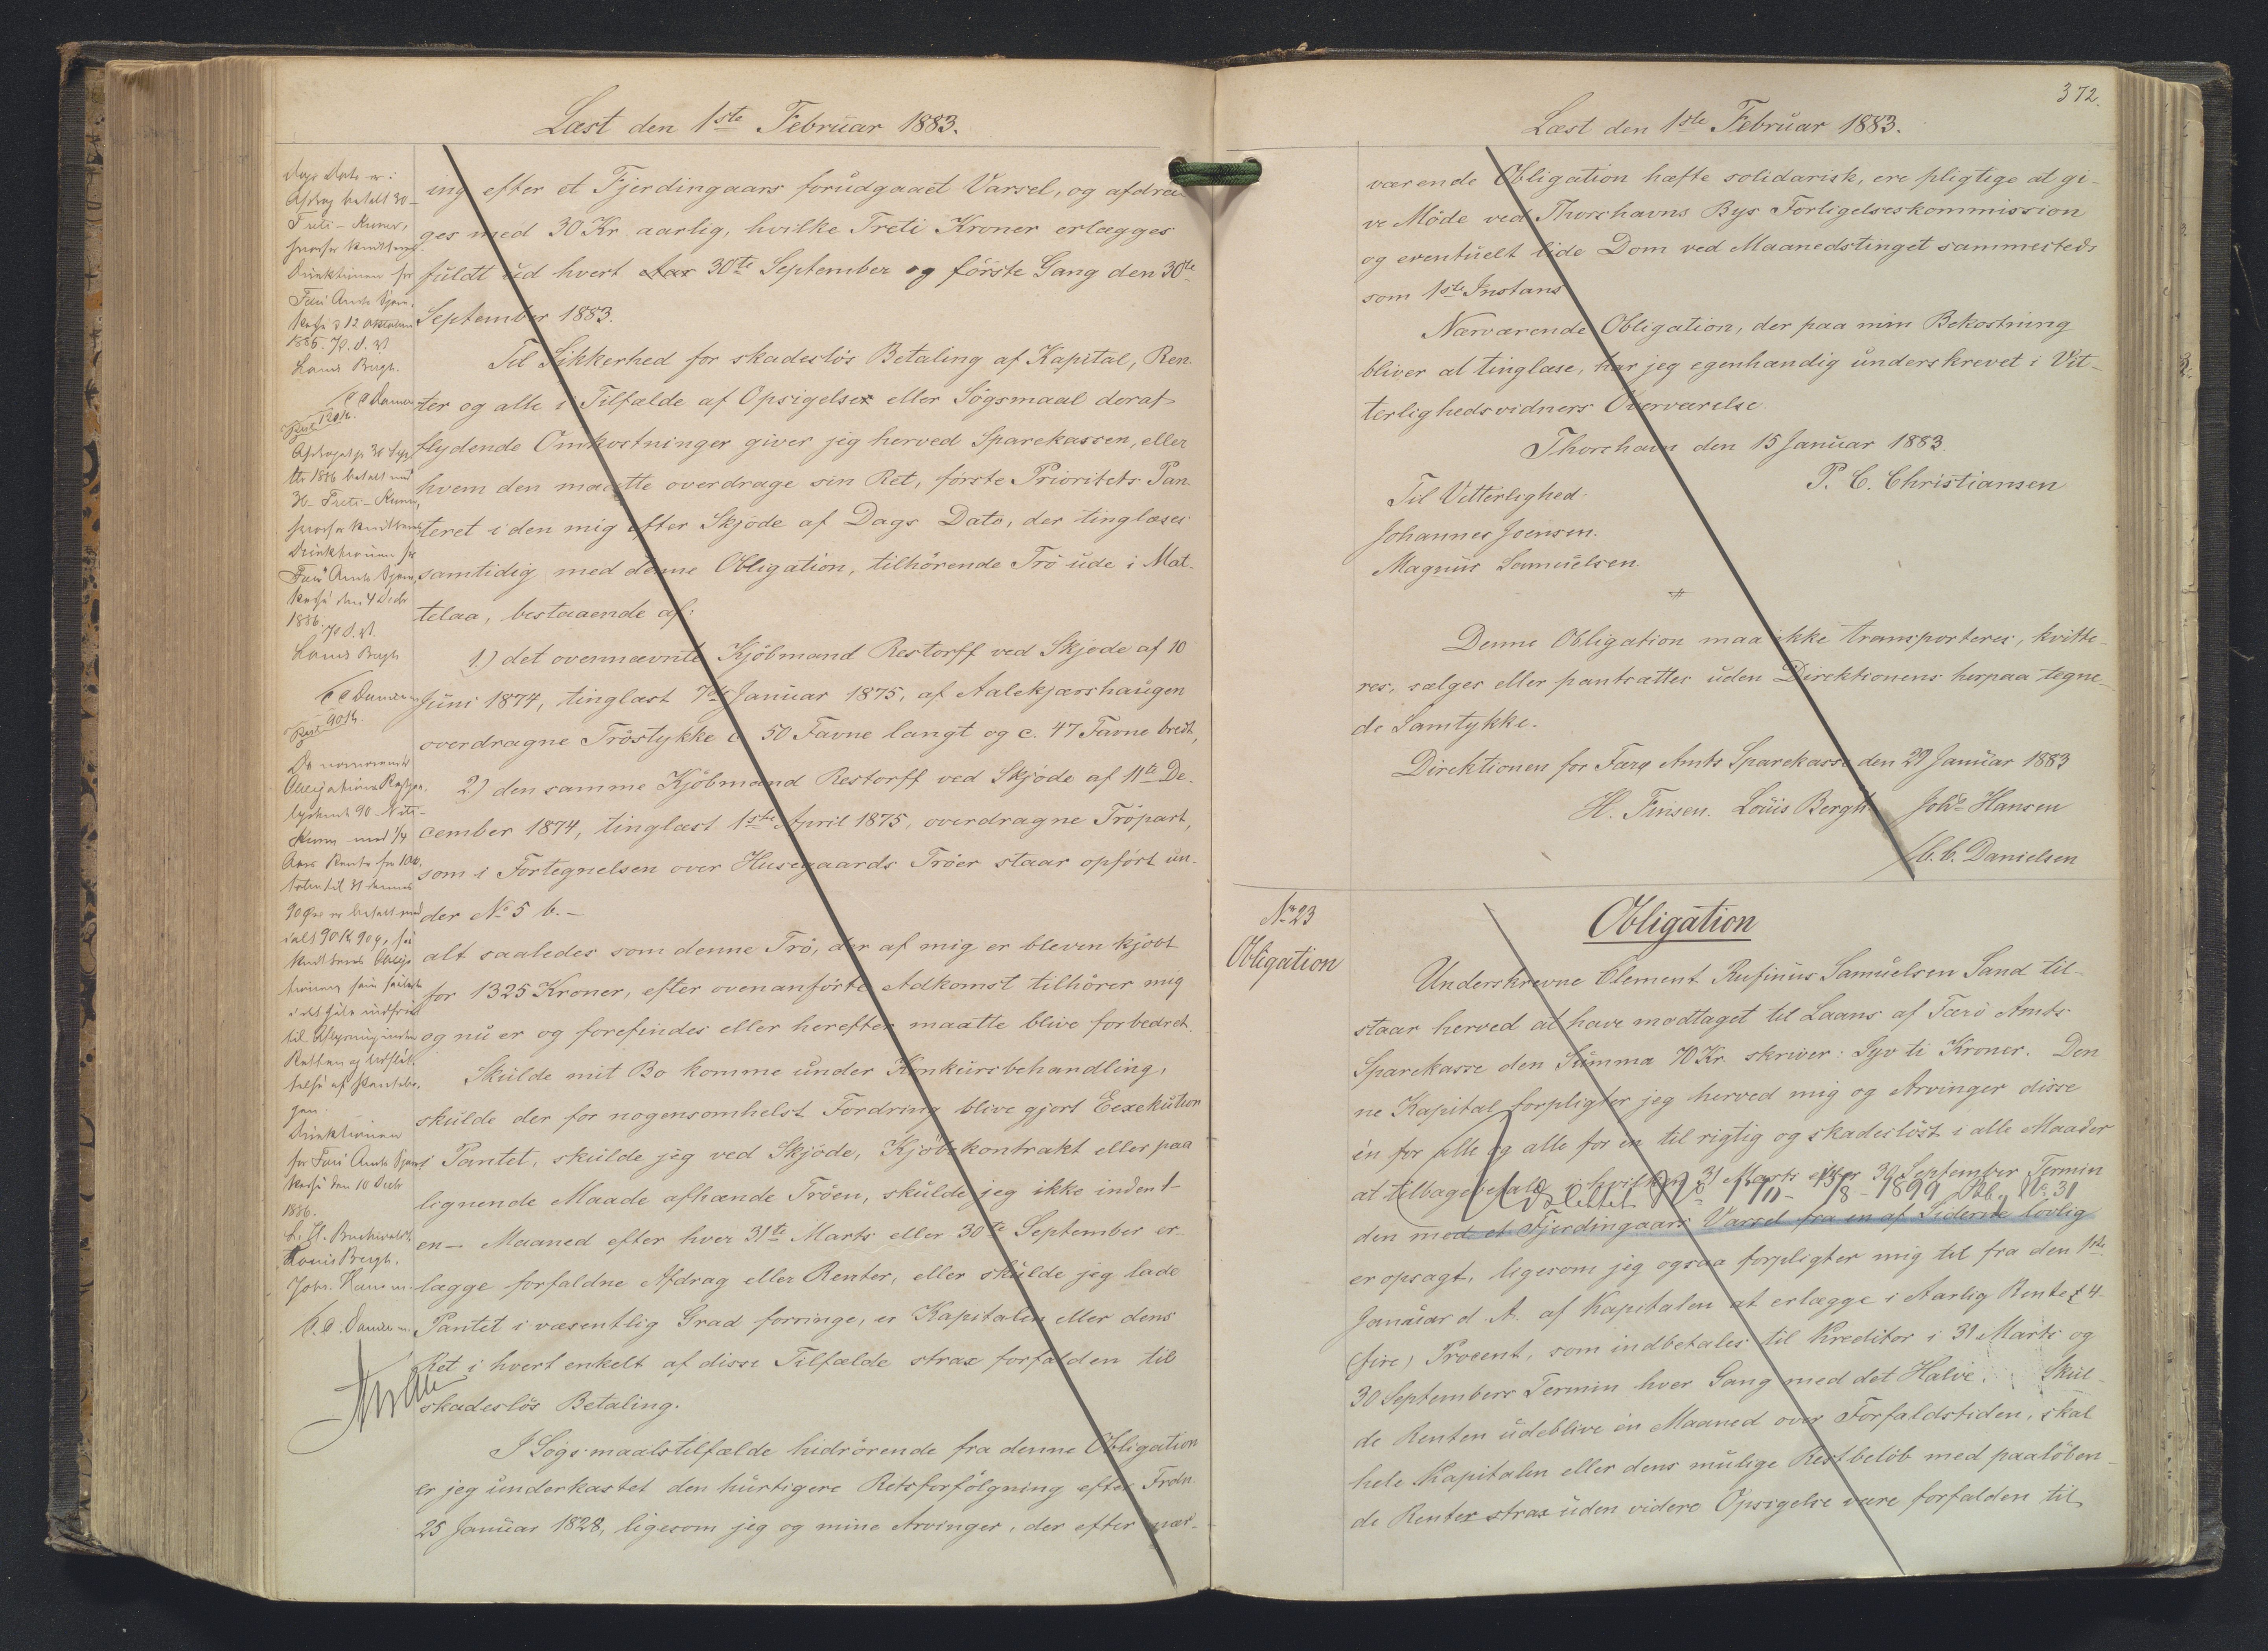 Læst den 1ste Februar 1883.
ing efter et Fjerdingaars forudgaaet Varsel, og afdra-
ges med 30 Kr. aarlig, hvilke Treti Kroner erlægges
fuldt ud hvert Aar 30te September og første Gang den 30te
September 1883.
Til Sikkerhed for skadesløs Betaling af Kapital, Ren-
ter og alle i Tilfælde af Opsigelse eller Søgsmaal deraf
flydende Omkostninger giver jeg herved Sparekassen, eller
hvem den maatte overdrage sin Ret, første Prioritets Pan-
teret i den mig efter Skjøde af Dags Dato, der tinglæses
samtidig med denne Obligation, tilhørende Trö ude i Mat-
telaa, bestaaende af:
1.) det ovennævnte Kjøbmand Restorff ved Skjøde af 10
Juni 1874, tinglæst 7de Januar 1875, af Aalekjærshaugen
overdragne Tröstykke c. 50 Favne langt og c. 47 Favne bredt,
2) den samme Kjøbmand Restorff ved Skjøde af 11te De-
cember 1874, tinglæst 1ste April 1875, overdragne Tröpart,
som i Fortegnelsen over Husegaards Tröer staar opført un-
der No 5 b. -
alt saaledes som denne Trö, der af mig er bleven kjøbt
for 1325 Kroner, efter ovenanførte Adkomst tilhører mig
og nu er og forefindes eller herefter maatte blive forbedret.
Skulde mit Bo komme under Konkursbehandling,
skulde der for nogensomhelst Fordring blive gjort Eexekution
i Pantet, skulde jeg ved Skjøde, Kjøbekontrakt eller paa
lignende Maade afhænde Tröen, skulde jeg ikke inden 1-
en - Maaned efter hver 31te Marts eller 30te September er-
lægge forfaldne Afdrag eller Renter, eller skulde jeg lade
Pantet i væsentlig Grad forringe, er Kapitalen eller dens
Ret i hvert enkelt af disse Tilfælde strax forfalden til
skadesløs Betaling.
I Søgsmaalstilfælde hidrørende fra denne Obligation
er jeg underkastet den hurtigere Retsforfølgning efter Frdn.
25 Januar 1828, ligesom jeg og mine Arvinger, der efter nær-
Afdrag betalt 30 -
Treti - Kroner,
Direktionen for
Færø Amts Spare-
kasse d 12 Oktober
1885.
Louis Bergh.
C C Danielsen
Rest 120 Kr.
1886 betalt med
30 - Treti - Kroner,
Direktionen for
Færø Amts Spare-
kasse den 4 Decbr
1886.
Louis Bergh
C C Danielsen
Rest 90 Kr.
Direktionen
for Færø Amts Spare-
kasse den 10 Decbr
1886.
Louis Bergh.
Johs. Hansen.
C. C. Danielsen.
372.
Læst den 1ste Februar 1883.
værende Obligation hæfte solidarisk, ere pligtige at gi-
ve Møde ved Thorshavns Byes Forligelseskommission
og eventuelt lide Dom ved Maanedstinget sammesteds
som 1ste Instans
Nærværende Obligation, der paa min Bekostning
bliver at tinglæse, har jeg egenhændig underskrevet i Vit-
terlighedsvidners Overværelse.
Thorshavn den 15 Januar 1883.
P. C. Christiansen
Til Vitterlighed.
Johannes Joensen.
Magnus Samuelsen.
Denne Obligation maa ikke transporteres, kvitte-
res, sælges eller pantsættes uden Direktionens herpaa tegne-
de Samtykke.
Direktionen for Færø Amts Sparekasse den 29 Januar 1883
H. Finsen. Louis Bergh Johs Hansen
C. C. Danielsen
No 23
Obligation
Obligation
Underskrevne Clement Rufinus Samuelsen Sand til-
staar herved at have modtaget til Laans af Færö Amts
Sparekasse den Summa 70 Kr. skriver: Syv ti Kroner. Den-
ne Kapital forpligter jeg herved mig og Arvinger disse
én for alle og alle for en til rigtig og skadesløst i alle Maader
at tilbagebetale i hvilken 31 Marts eller 30 September Termin
Udslettet No 170 - 14/8 - 1899 Pkb. No. 31
den med et Fjerdingaars Varsel fra en af Siderne lovlig
er opsagt, ligesom jeg ogsaa forpligter mig til fra den 1ste
Januar d. A. af Kapitalen at erlægge i Aarlig Rente 4
(fire) Procent, som indbetales til Kreditor i 31 Marts og
30 Septembers Termin hver Gang med det Halve. Skul-
de Renten udeblive én Maaned over Forfaldstiden, skal
hele Kapitalen eller dens mulige Restbeløb med paaløben-
de Renter strax uden videre Opsigelse være forfalden til